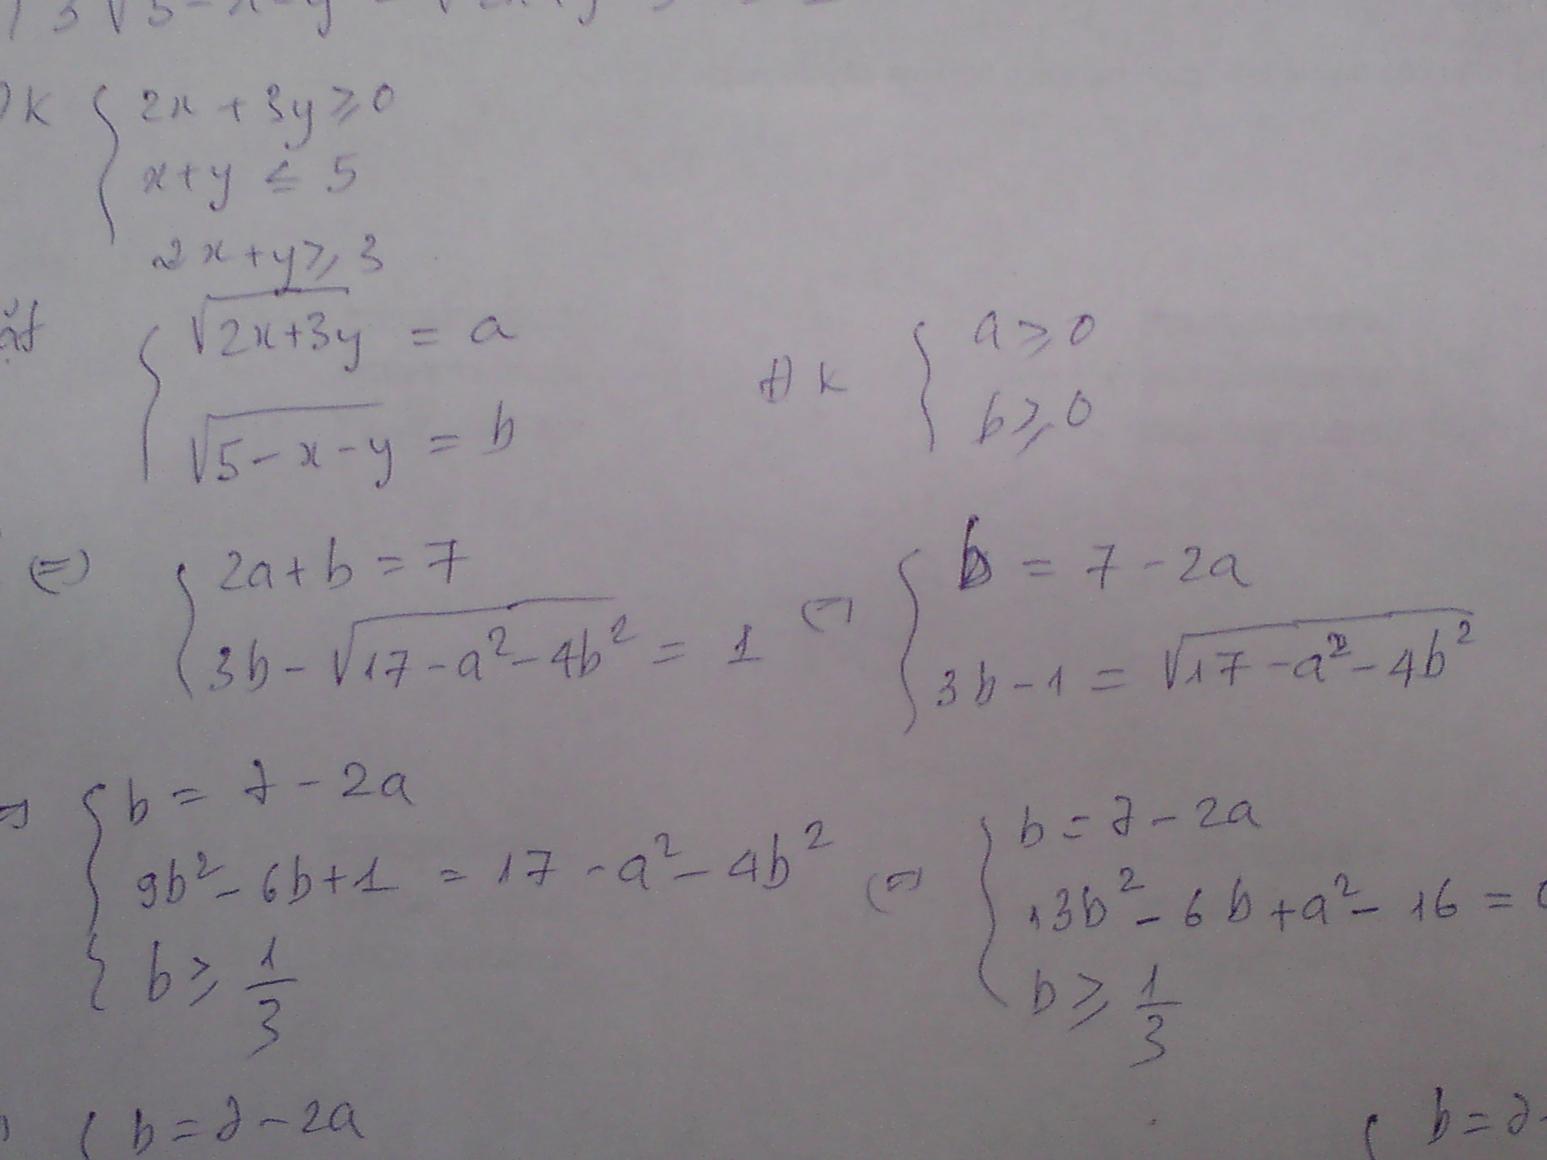 3√5-x-y
ĐK { 2x + 3y ≥ 0
x+y ≤ 5
2x+y ≥ 3
{ √2x+3y = a
√5-x-y = b
ĐK { a ≥ 0
b ≥ 0
(=) { 2a+b = 7
3b - √17-a²-4b² = 1
(=) { b = 7 - 2a
3b-1 = √17-a²-4b²
{ b = 7 - 2a
9b² - 6b+1 = 17 - a² - 4b²
b ≥ 1/3
(=) { b = 7 - 2a
13b² - 6b + a² - 16 =
b ≥ 1/3
{ b = 7 - 2a
{ b = 7